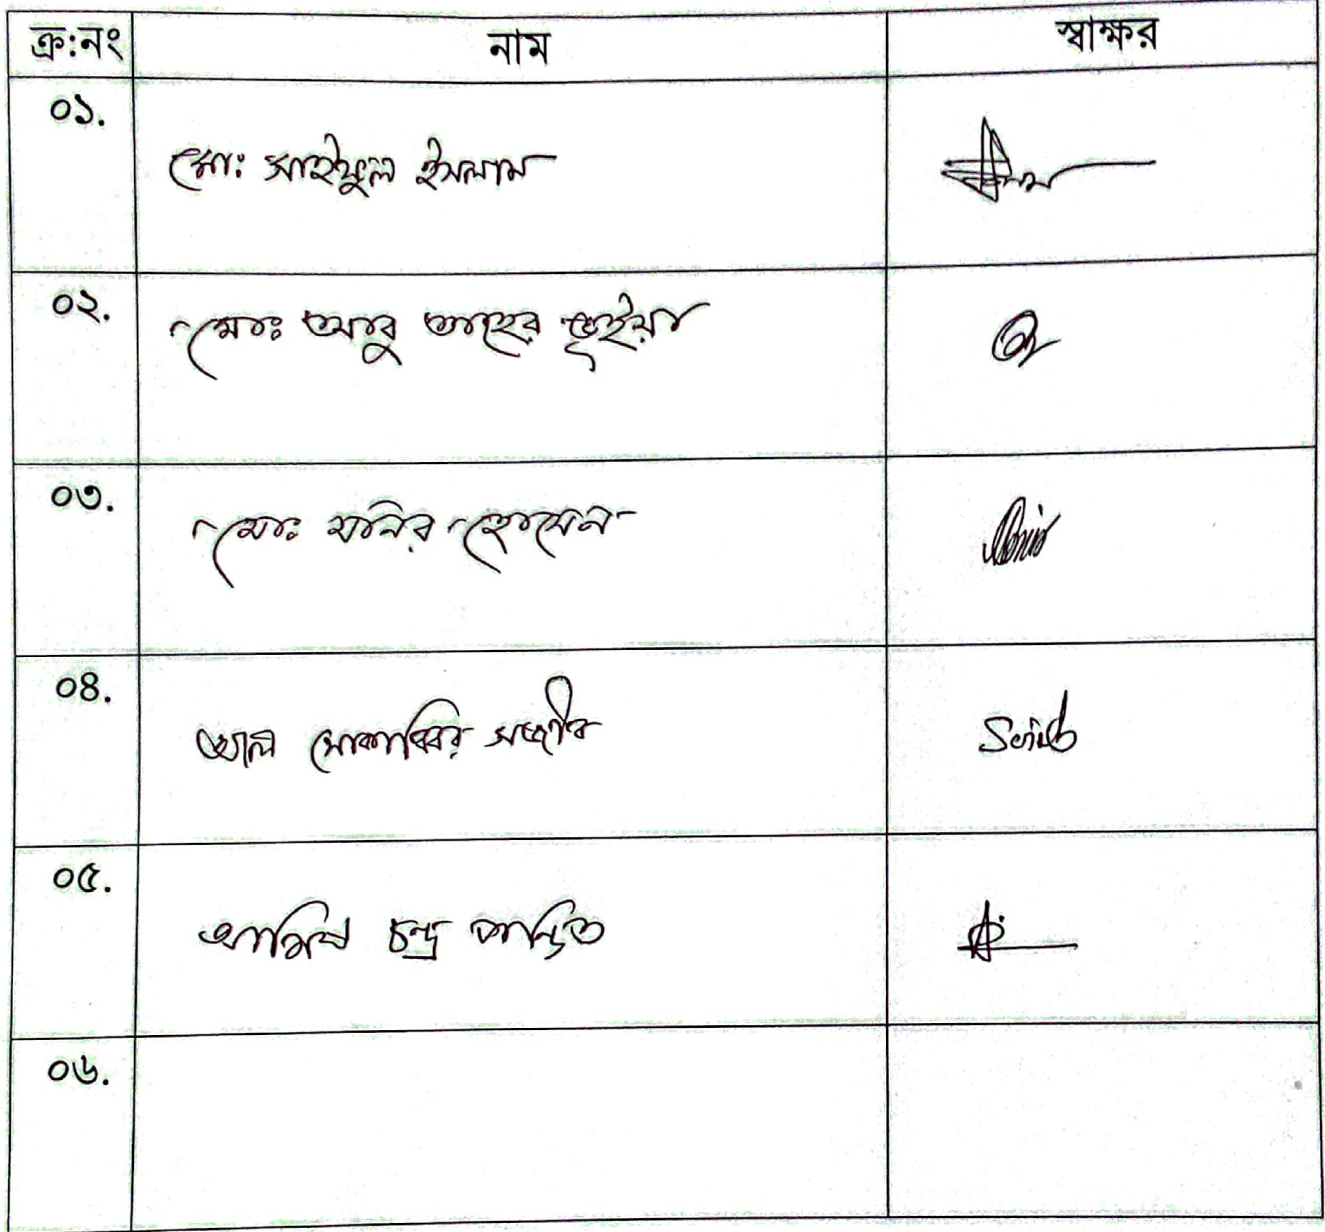 ক্র:নং নাম স্বাক্ষর
০১. মোঃ সাইফুল ইসলাম
০২. মোঃ আবু তাহের ভূইয়া
০৩. মোঃ মনির হোসেন
০৪. আল মোকাব্বির সজীব
০৫. আশিষ চন্দ্র পন্ডিত
০৬.